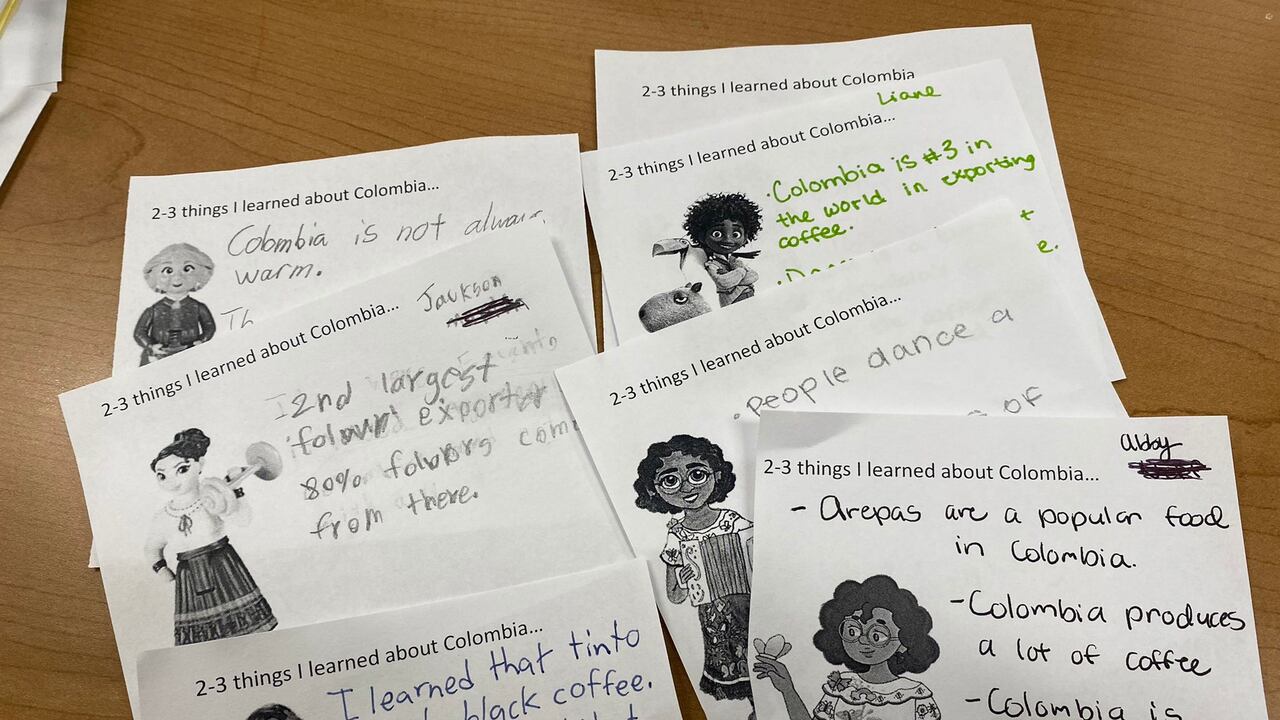 2-3 things I learned about Colombia
2-3 things I learned about Colombia...
Liane
·Colombia is #3 in
the world in exporting
coffee.
2-3 things I learned about Colombia...
Colombia is not
warm.
Th
2-3 things I learned about Colombia...
Jackson
2nd largest
exporter
80%
from there.
2-3 things I learned about Colombia...
·People dance a
of
2-3 things I learned about Colombia...
abby
- Arepas are a popular food
in Colombia.
-Colombia produces
a lot of coffee
-Colombia is
2-3 things I learned about Colombia...
I learned that tinto
black coffee.